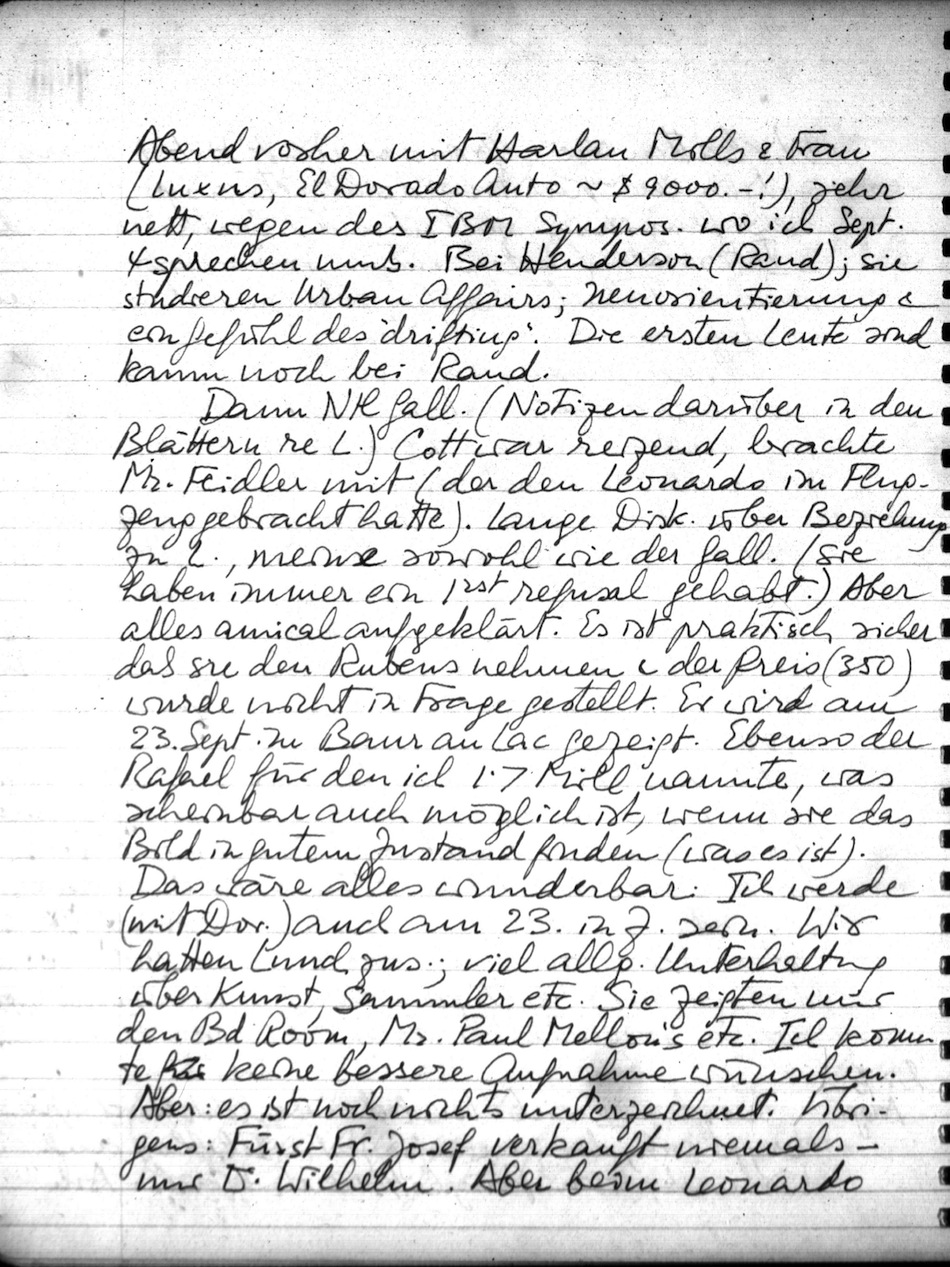 Abend vorher mit Harlan Mills & Frau
(Luxus, El Dorado Auto ~ $ 9000.-!), sehr
nett, wegen des IBM Sympos. wo ich Sept.
4 sprechen muß. Bei Henderson (Rand); sie
studieren Urban Affairs; Neuorientierung &
ein Gefühl des 'drifting'. Die ersten Leute sind
kaum noch bei Rand.
Dann Nat Gall. (Notizen darüber in den
Blättern re L.) Cott war reizend, brachte
Mr. Feidler mit (der den Leonardo im Flug-
zeug gebracht hatte). Lange Disk. über Beziehung
zu L., meine sowohl wie der Gall. (Sie
haben immer ein 1rst refusal gehabt.) Aber
alles amical aufgeklärt. Es ist praktisch sicher
daß sie den Rubens nehmen & der Preis (350)
wurde nicht in Frage gestellt. Er wird am
23. Sept. im Baur au Lac gezeigt. Ebenso der
Rafael für den ich 1.7 Mill nannte, was
scheinbar auch möglich ist, wenn sie das
Bild in gutem Zustand finden (was es ist).
Das wäre alles wunderbar. Ich werde
(mit Dor.) auch am 23. in Z. sein. Wir
hatten Lunch zus.; viel allg. Unterhaltung
über Kunst, Sammler etc. Sie zeigten mir
den Bd. Room, Mr. Paul Mellon's etc. Ich konn
te keine bessere Aufnahme wünschen.
Aber: es ist noch nichts unterzeichnet. Übri-
gens: Fürst Fr. Josef verkauft niemals –
nur D. Wilhelm. Aber beim Leonardo